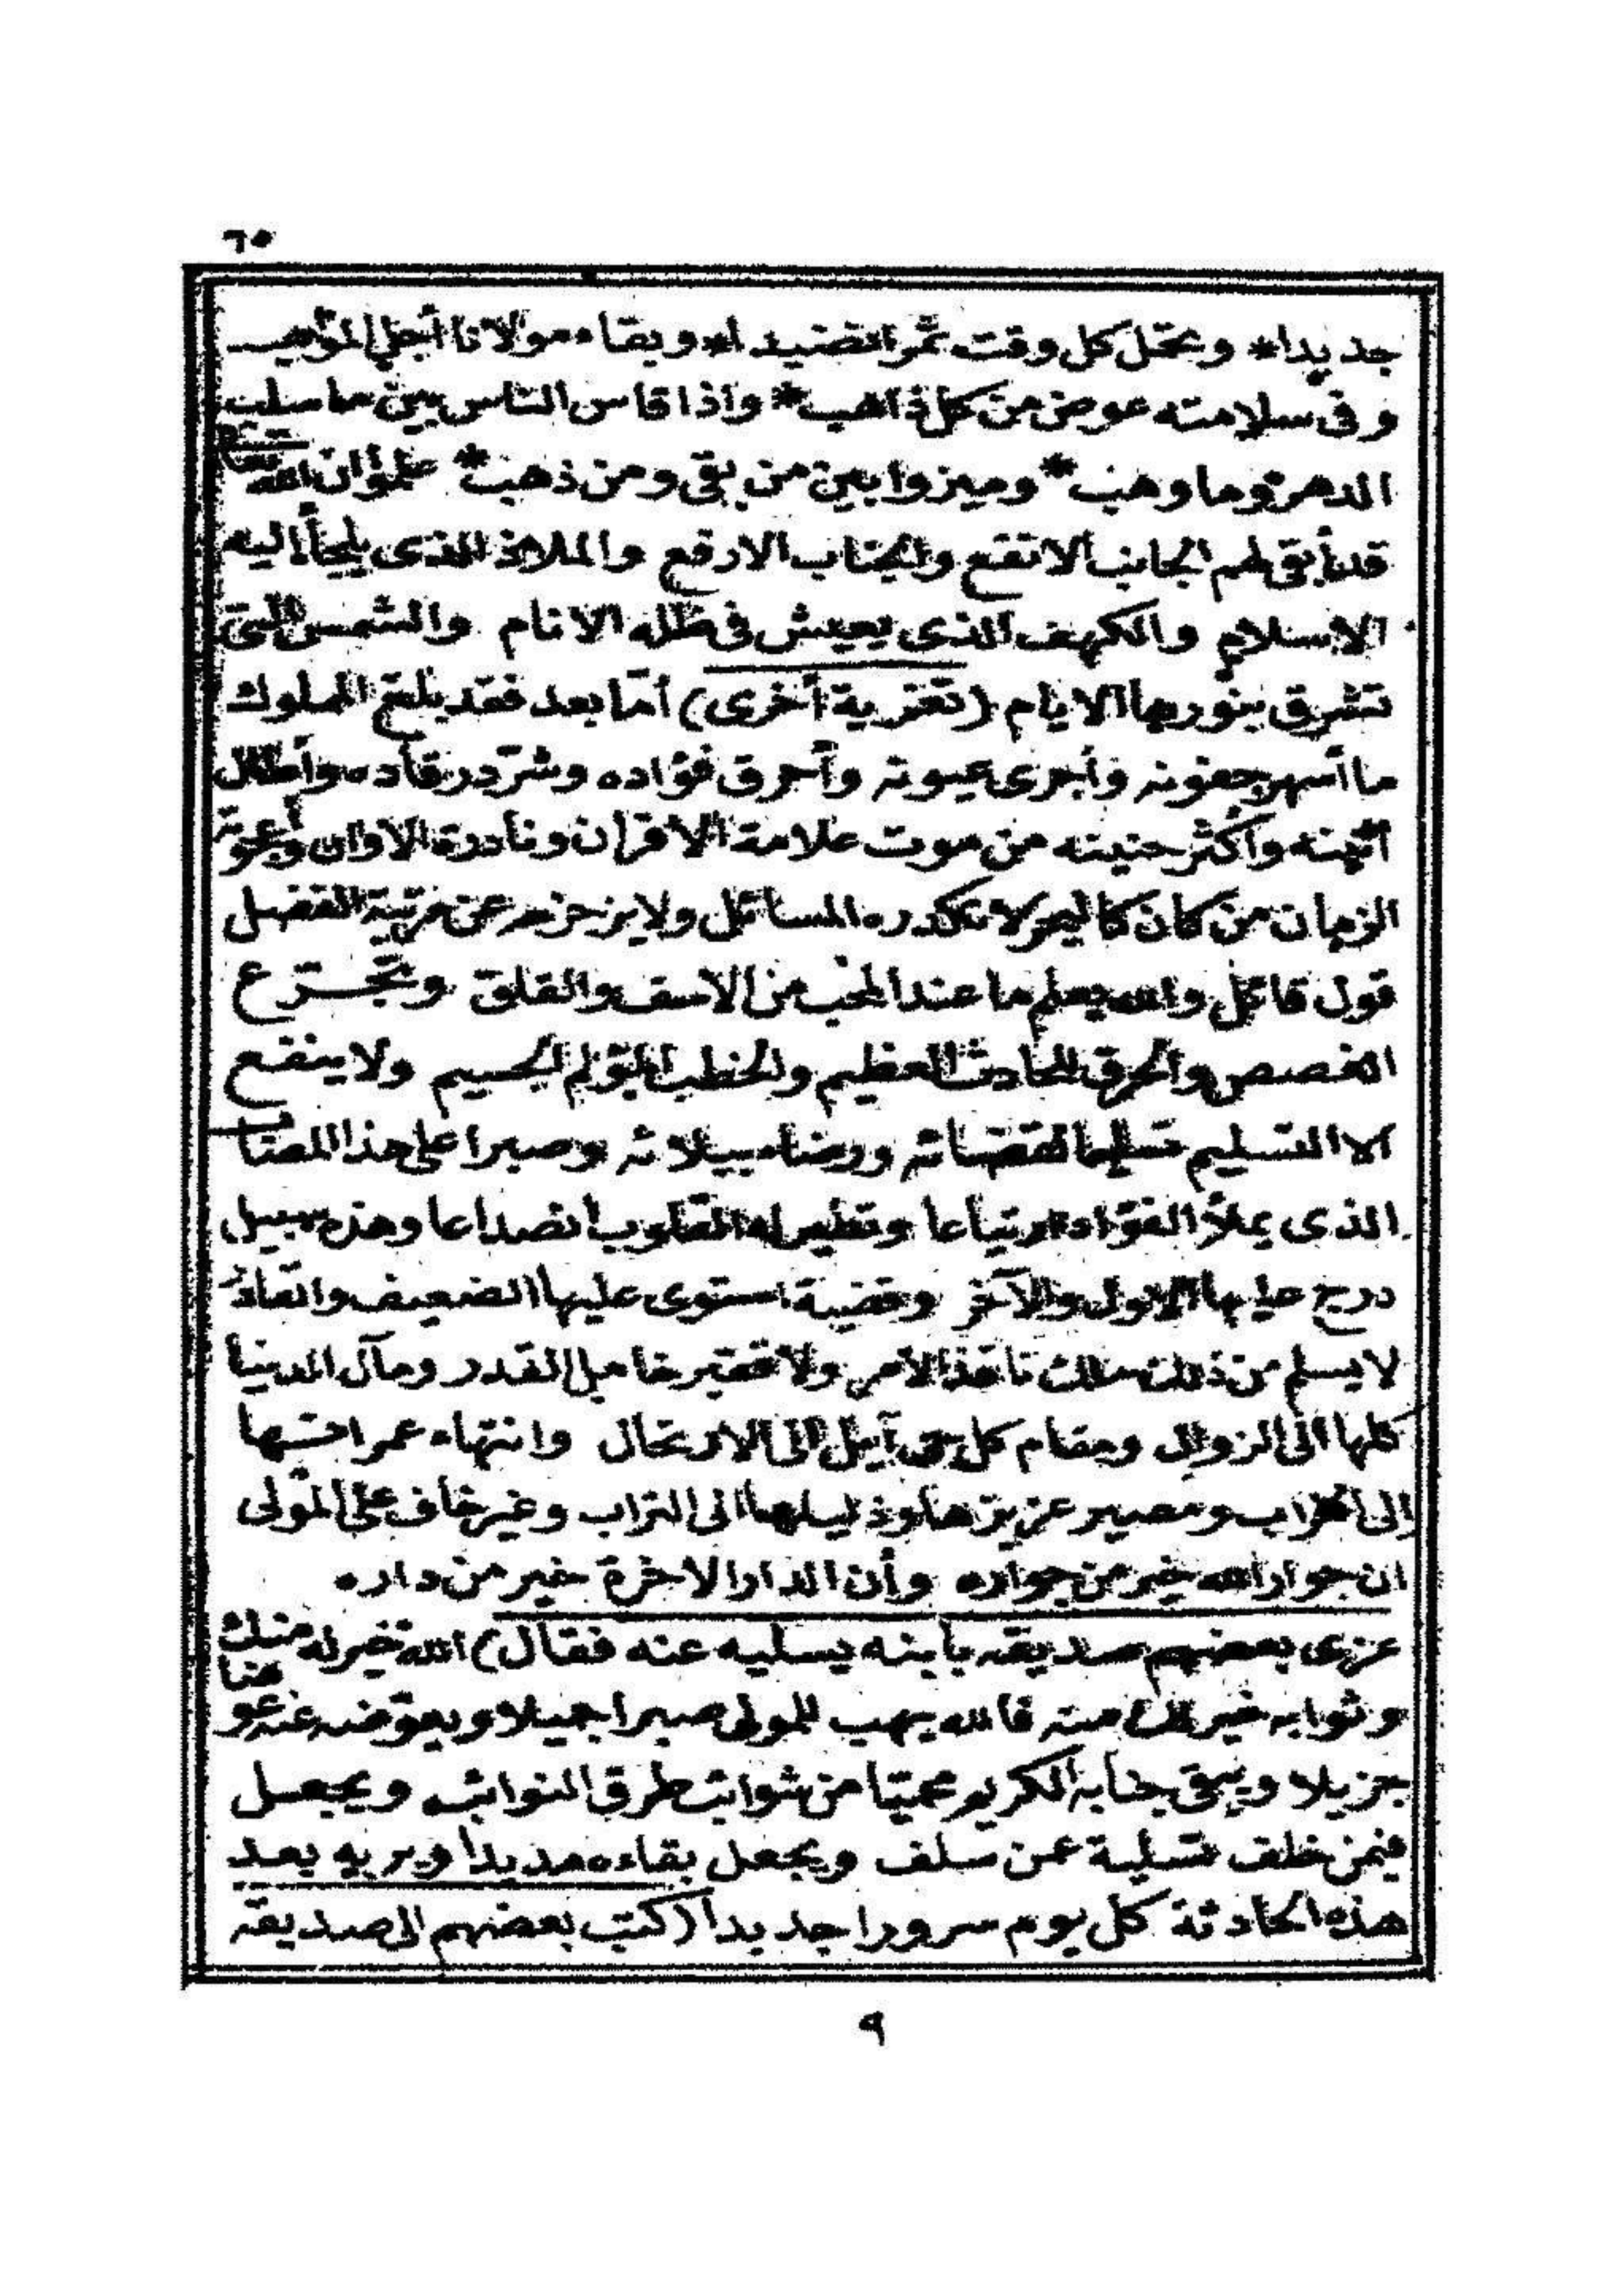 ٦٥
جديدا* وتحمل كل وقت ثمرا نضيدا* وبقاء مولانا أجل المواهب
وفى سلامته عوض من كل ذاهب* واذا قاس الناس بين ما سلب
الدهر وما وهب* وميزوا بين من بقى ومن ذهب* علموا ان الله تعالى
قد أبقى لهم الجانب الانفع والجناب الارفع والملاذ الذى يلجأ اليه
الاسلام والكهف الذى يعيش فى ظله الانام والشمس التى
تشرق بنورها الايام (تعزية أخرى) أما بعد فقد بلغ المملوك
ما أسهر جفونه وأجرى عيونه وأحرق فؤاده وشرّد رقاده وأطال
أنينه وأكثر حنينه من موت علامة الاقران ونادرة الاوان وأعجوبة
الزمان من كان كالبحر لا تكدره المسائل ولا يزحزحه عن مرتبة الفضل
قول قائل والله يعلم ما عند المحب من الاسف والقلق وتجرّع
الغصص والحرق للحادث العظيم والخطب المؤلم الجسيم ولا ينفع
الا التسليم تسليما لقضائه ورضاء ببلائه وصبرا على هذا المصاب
الذى يملأ الفؤاد ارتياعا وتطير له القلوب انصداعا وهذه سبيل
درج عليها الاول والآخر وقضية استوى عليها الضعيف والقادر
لا يسلم من ذلك ملك نافذ الامر ولا فقير خامل القدر ومآل الدنيا
كلها الى الزوال ومقام كل حى آيل الى الارتحال وانتهاء عمرانها
إلى الخراب ومصير عزيزها وذليلها الى التراب وغير خاف على المولى
ان جوار الله خير من جواره وأن الدار الاخرة خير من داره
عزى بعضهم صديقه بابنه يسليه عنه فقال) الله خير له منك
وثوابه خير لك منه فالله يهب للمولى صبرا جميلا ويعوّضه عنه عوضا
جزيلا ويبقى جنابه الكريم محميا من شوائب طرق النوائب ويجعل
فيمن خلف تسلية عمن سلف ويجعل بقاءه مديدا ويريه بعد
هذه الحادثة كل يوم سرورا جديدا (كتب بعضهم الى صديقه
٩